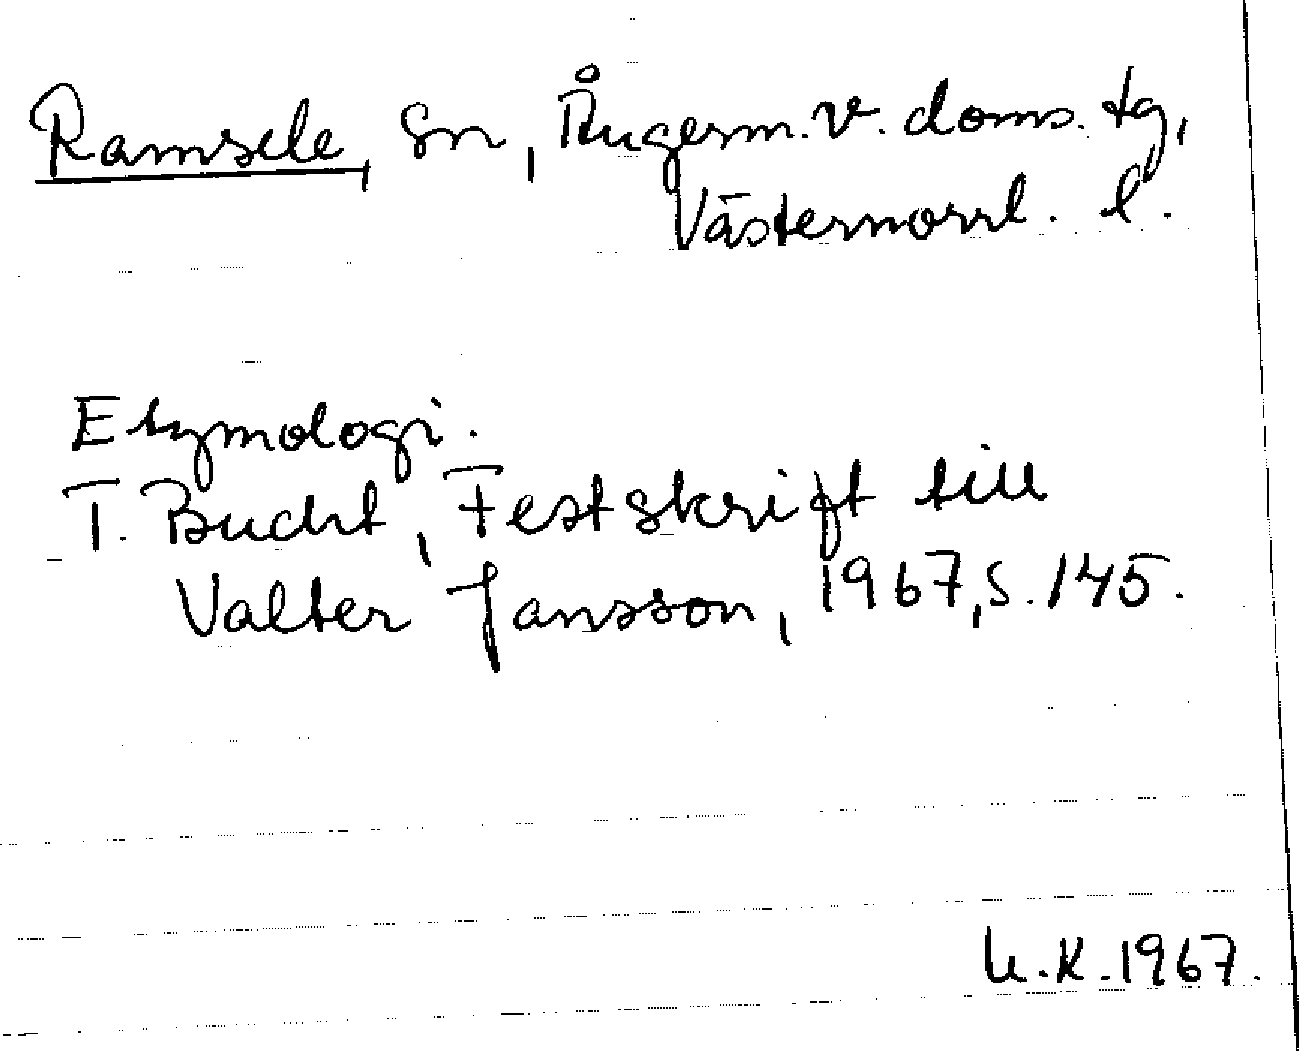 Ramsele, Sn, Ångerm. v. doms. tg,
Västernorrl. l.
Etymologi.
T. Bucht, Festskrift till
Valter Jansson, 1967, s. 145.
U.K. 1967.